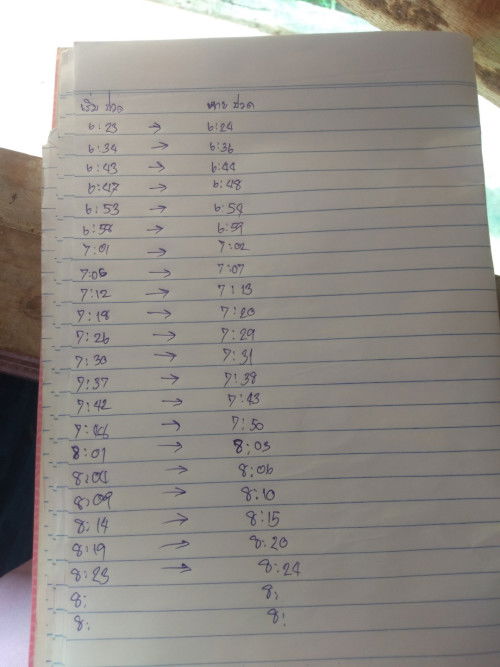 เริ่มปวด หายปวด
6:23 → 6:24
6:34 → 6:36
6:43 → 6:44
6:47 → 6:48
6:53 → 6:54
6:58 → 6:59
7:01 → 7:02
7:06 → 7:07
7:12 → 7:13
7:18 → 7:20
7:26 → 7:29
7:30 → 7:31
7:37 → 7:38
7:42 → 7:43
→ 7:50
8:01 → 8:03
→ 8:06
8:09 → 8:10
8:14 → 8:15
8:19 → 8:20
8:23 → 8:24
8: 8:
8: 8: